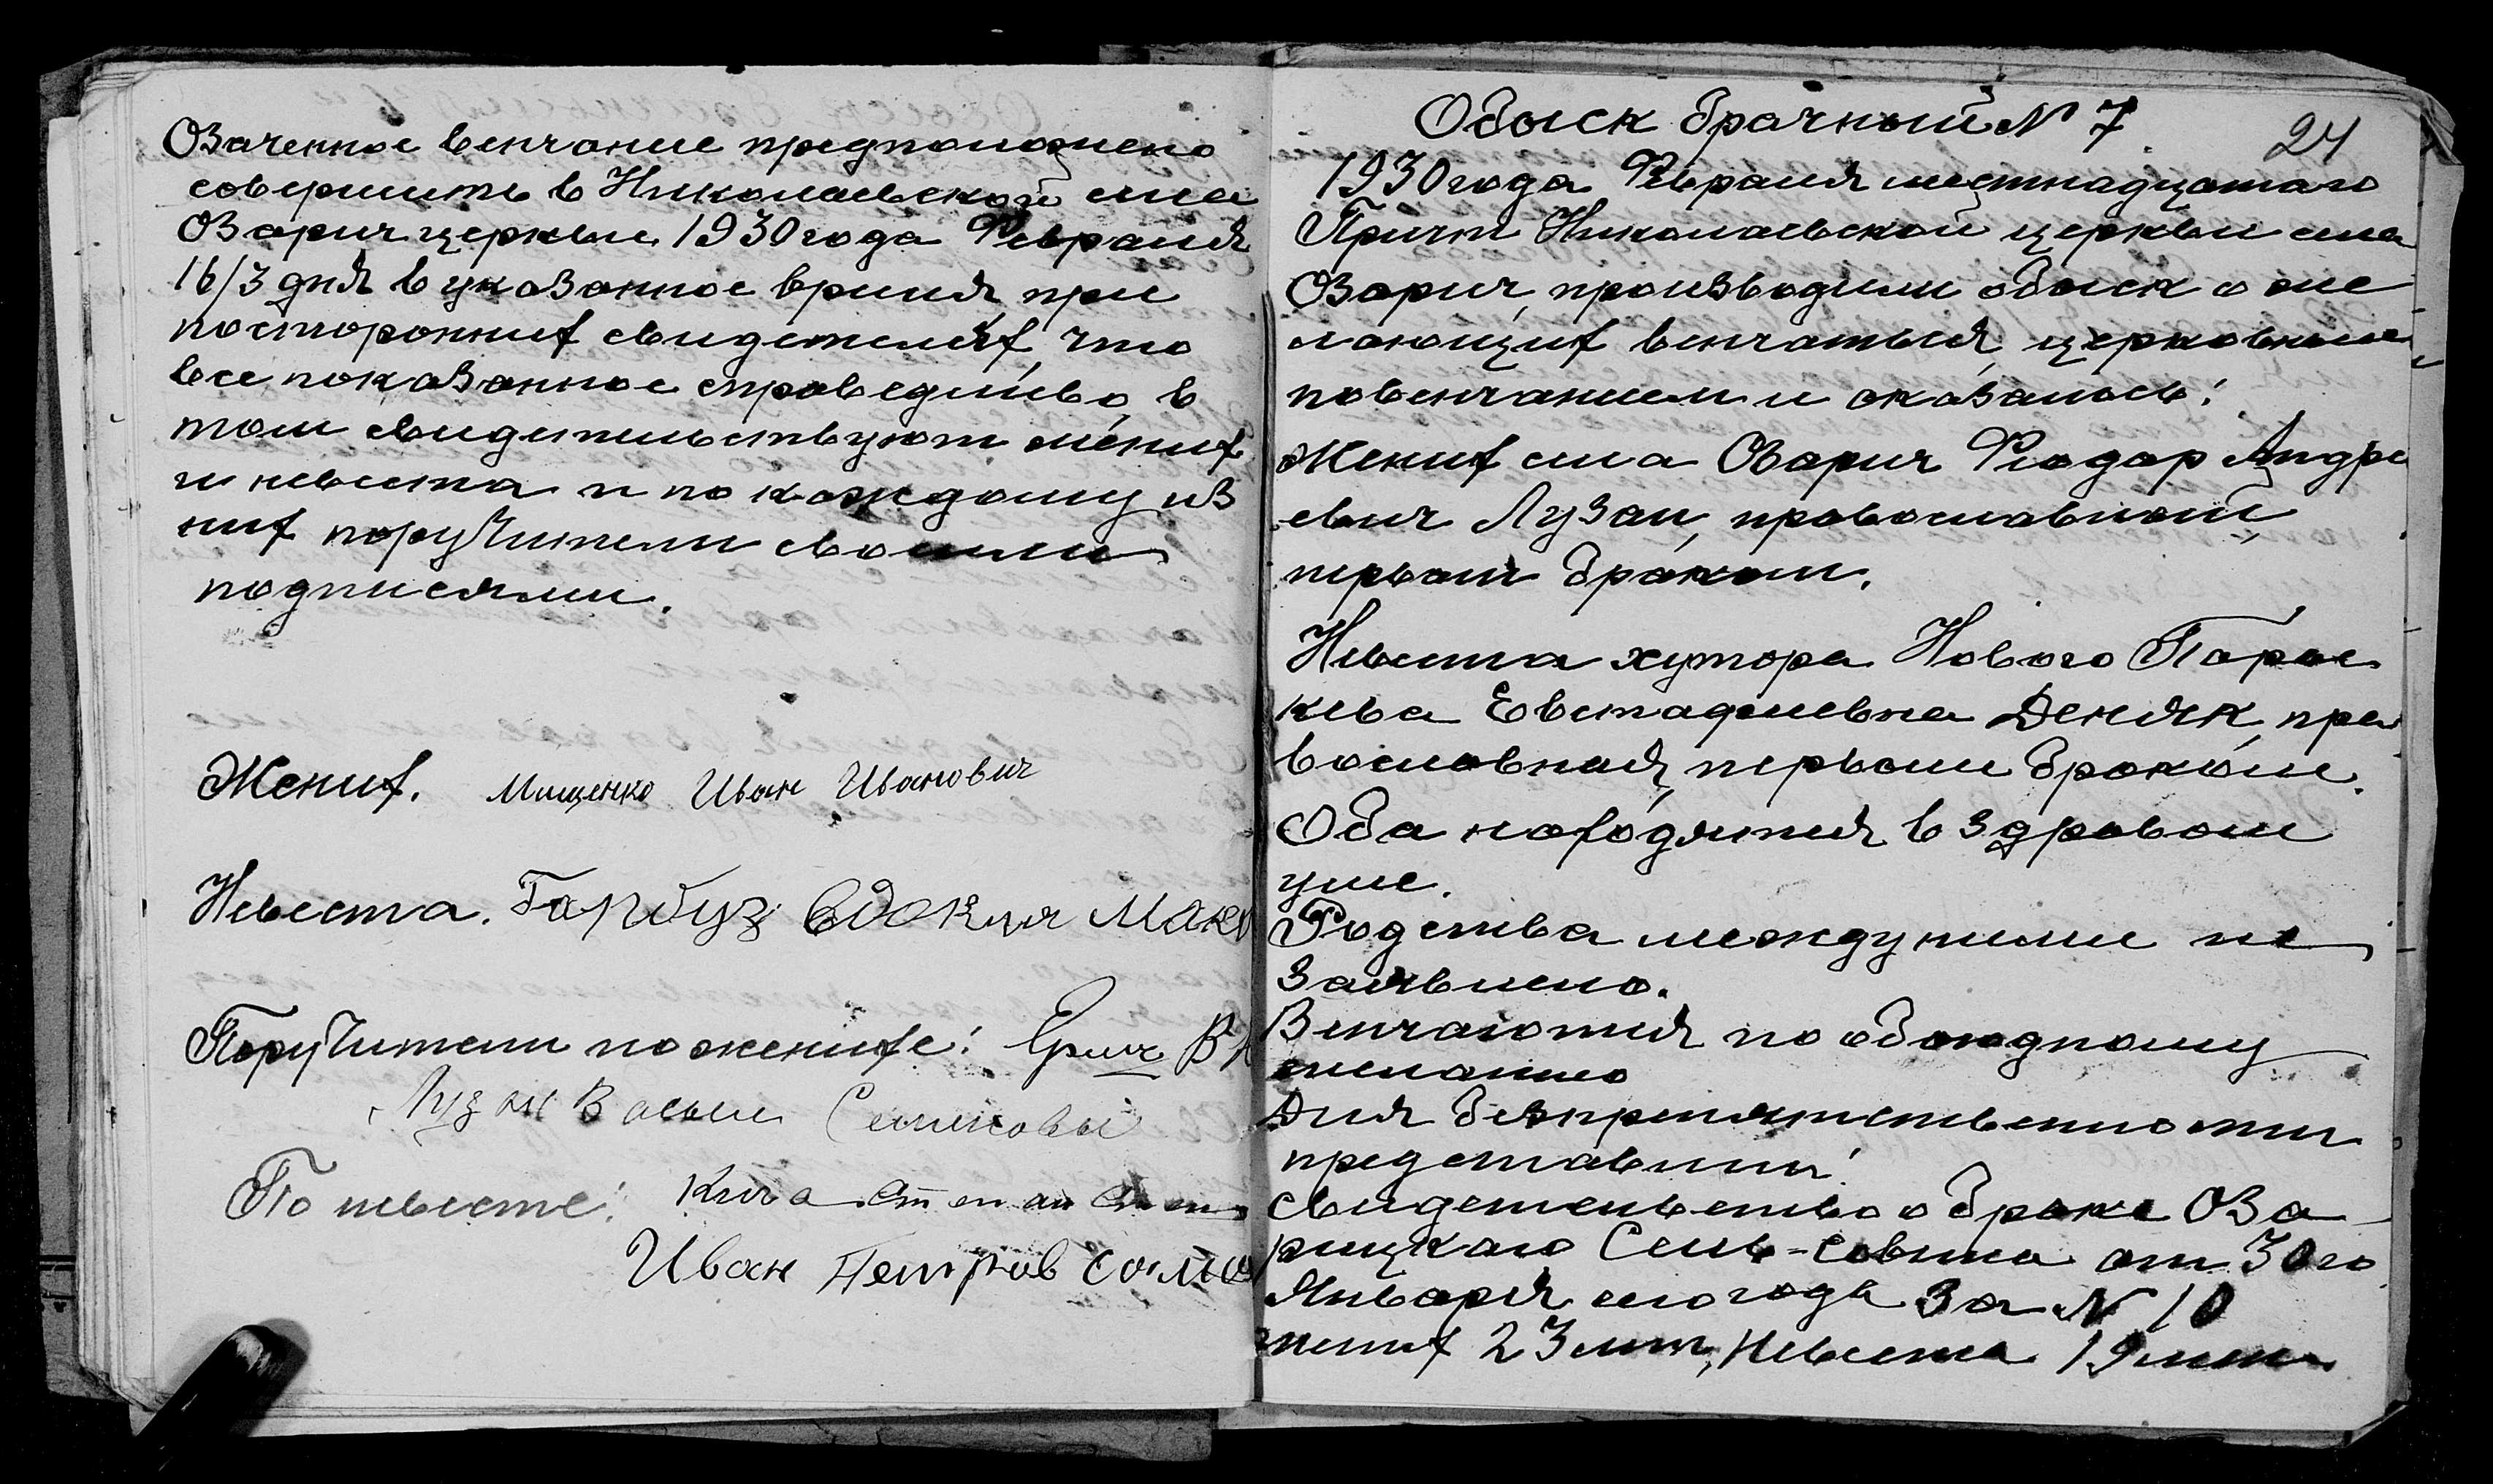 Означенное венчание предположено
совершить в Николаевской села
Озарич церквы 1930 года Февраля
16/3 дня в указанное время при
посторонних свидетелях, что
все показанное справедливо, в
том свидетельствуют жених
и невеста и по каждому из
них поручители своими
подписями.
Жених. Мищенко Иван Иванович
Невеста. Гарбуз Евдокия
Поручители по женихе:
Лузан Василь
По невесте: Кича
Иван Петров
Обыск брачный N 7
24
1930 года Февраля шестнадцатаго
Причт Николаевской церквы села
Озарич, производили обыск о же
лающих венчаться, церковным
повенчанием и оказалось:
Жених села Озарич Фиодар Андре
евич Лузан, православный,
первым браком.
Невеста хутора Нового Парас
кева Евстафиевна Деняк, пра
вославная, первым браком.
Оба находятся в здравом
уме.
Родства между ними не
заявлено.
Венчаются по обоюдному
желанию
Для безпрепятственности
представили:
свидетельство о браке Оза
рицкаго Сель-совета от 30го
Января сего года за N 10
жених 23 лет, Невеста 19 лет